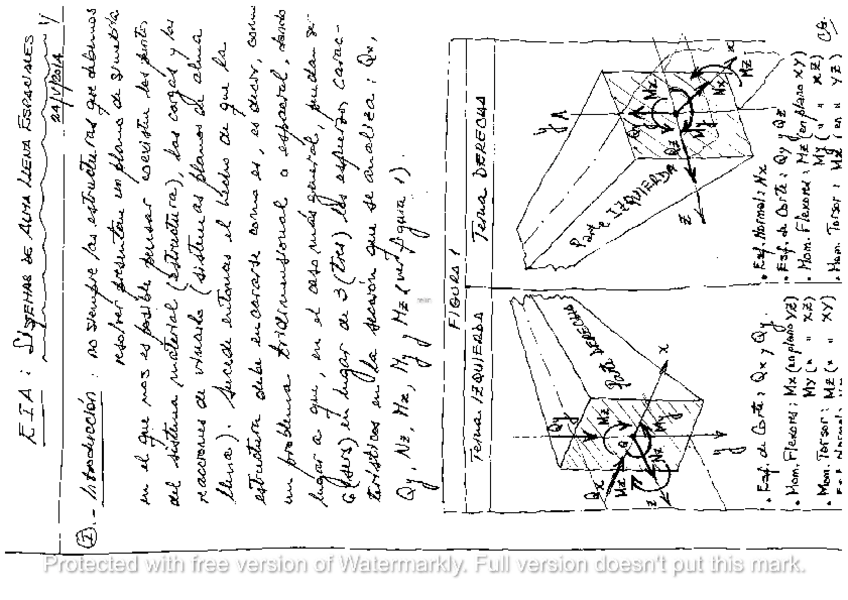 EIA : SISTEMAS DE ALMA LLENA ESPACIALES
29/V/2014
I.- Introducción : no siempre las estructuras que debemos
resolver presentan un plano de simetría
en el que nos es posible pensar coexisten los puntos
del sistema material (estructura), las cargas y las
reacciones de vínculo (sistemas planos de alma
llena). Sucede entonces el hecho de que la
estructura debe encararse como es, es decir, como
un problema tridimensional o espacial, dando
lugar a que, en el caso más general, puedan ser
6 (seis) en lugar de 3 (tres) los esfuerzos carac-
terísticos en la sección que se analiza : Qx,
Qy, Nz, Mx, My y Mz (ver figura 1).
FIGURA 1
Terna IZQUIERDA
Terna DERECHA
Parte DERECHA
Qy
Mz
Qx
Mx
My
Nz
G
x
y
z
• Esf. de Corte : Qx y Qy.
• Mom. Flexores : Mx (en plano YZ)
My (" " XZ)
• Mom. Torsor : Mz (" " XY)
Parte IZQUIERDA
y
Qy
Mx
Qz
My
Nx
Mz
x
z
• Esf. Normal : Nx
• Esf. de Corte : Qy y Qz
• Mom. Flexores : Mz (en plano XY)
My (" " XZ)
• Mom. Torsor : Mx (en " YZ)
Protected with free version of Watermarkly. Full version doesn't put this mark.